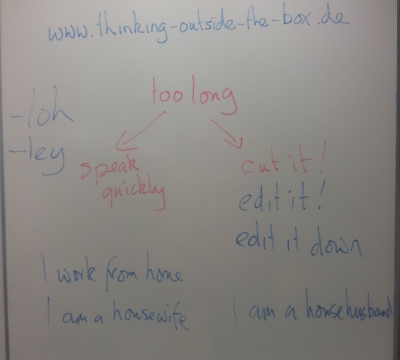 www.thinking-outside-the-box.de
too long
-loh
-ley
speak
quickly
cut it!
edit it!
edit it down
I work from home
I am a housewife
I am a househusband